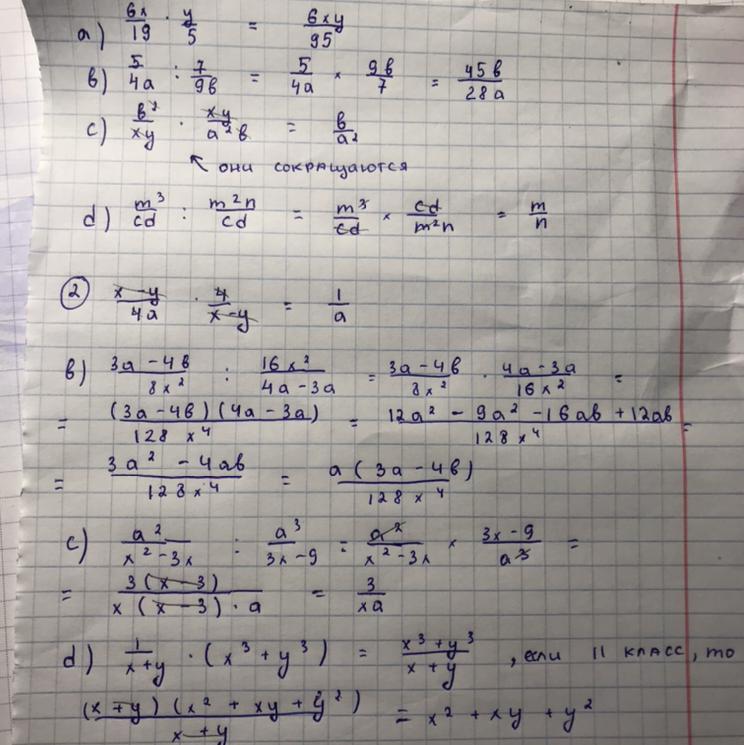 a) 6x/19 · y/5 = 6xy/95
в) 5/4a : 7/9в = 5/4a × 9в/7 = 45в/28a
c) в²/xy · xy/a²в = в/a²
↖ они сокращаются
d) m³/cd : m²n/cd = m³/cd × cd/m²n = m/n
② x-y/4a · 4/x-y = 1/a
в) 3a-4в/8x² : 16x²/4a-3a = 3a-4в/8x² · 4a-3a/16x² =
= (3a-4в)(4a-3a)/128x⁴ = 12a² - 9a² - 16aв + 12aв/128x⁴ =
= 3a² - 4aв/128x⁴ = a(3a-4в)/128x⁴
c) a²/x²-3x : a³/3x-9 = a²/x²-3x × 3x-9/a³ =
= 3(x-3)/x(x-3)·a = 3/xa
d) 1/x+y · (x³+y³) = x³+y³/x+y , если 11 класс, то
(x+y)(x² + xy + y²)/x+y = x² + xy + y²